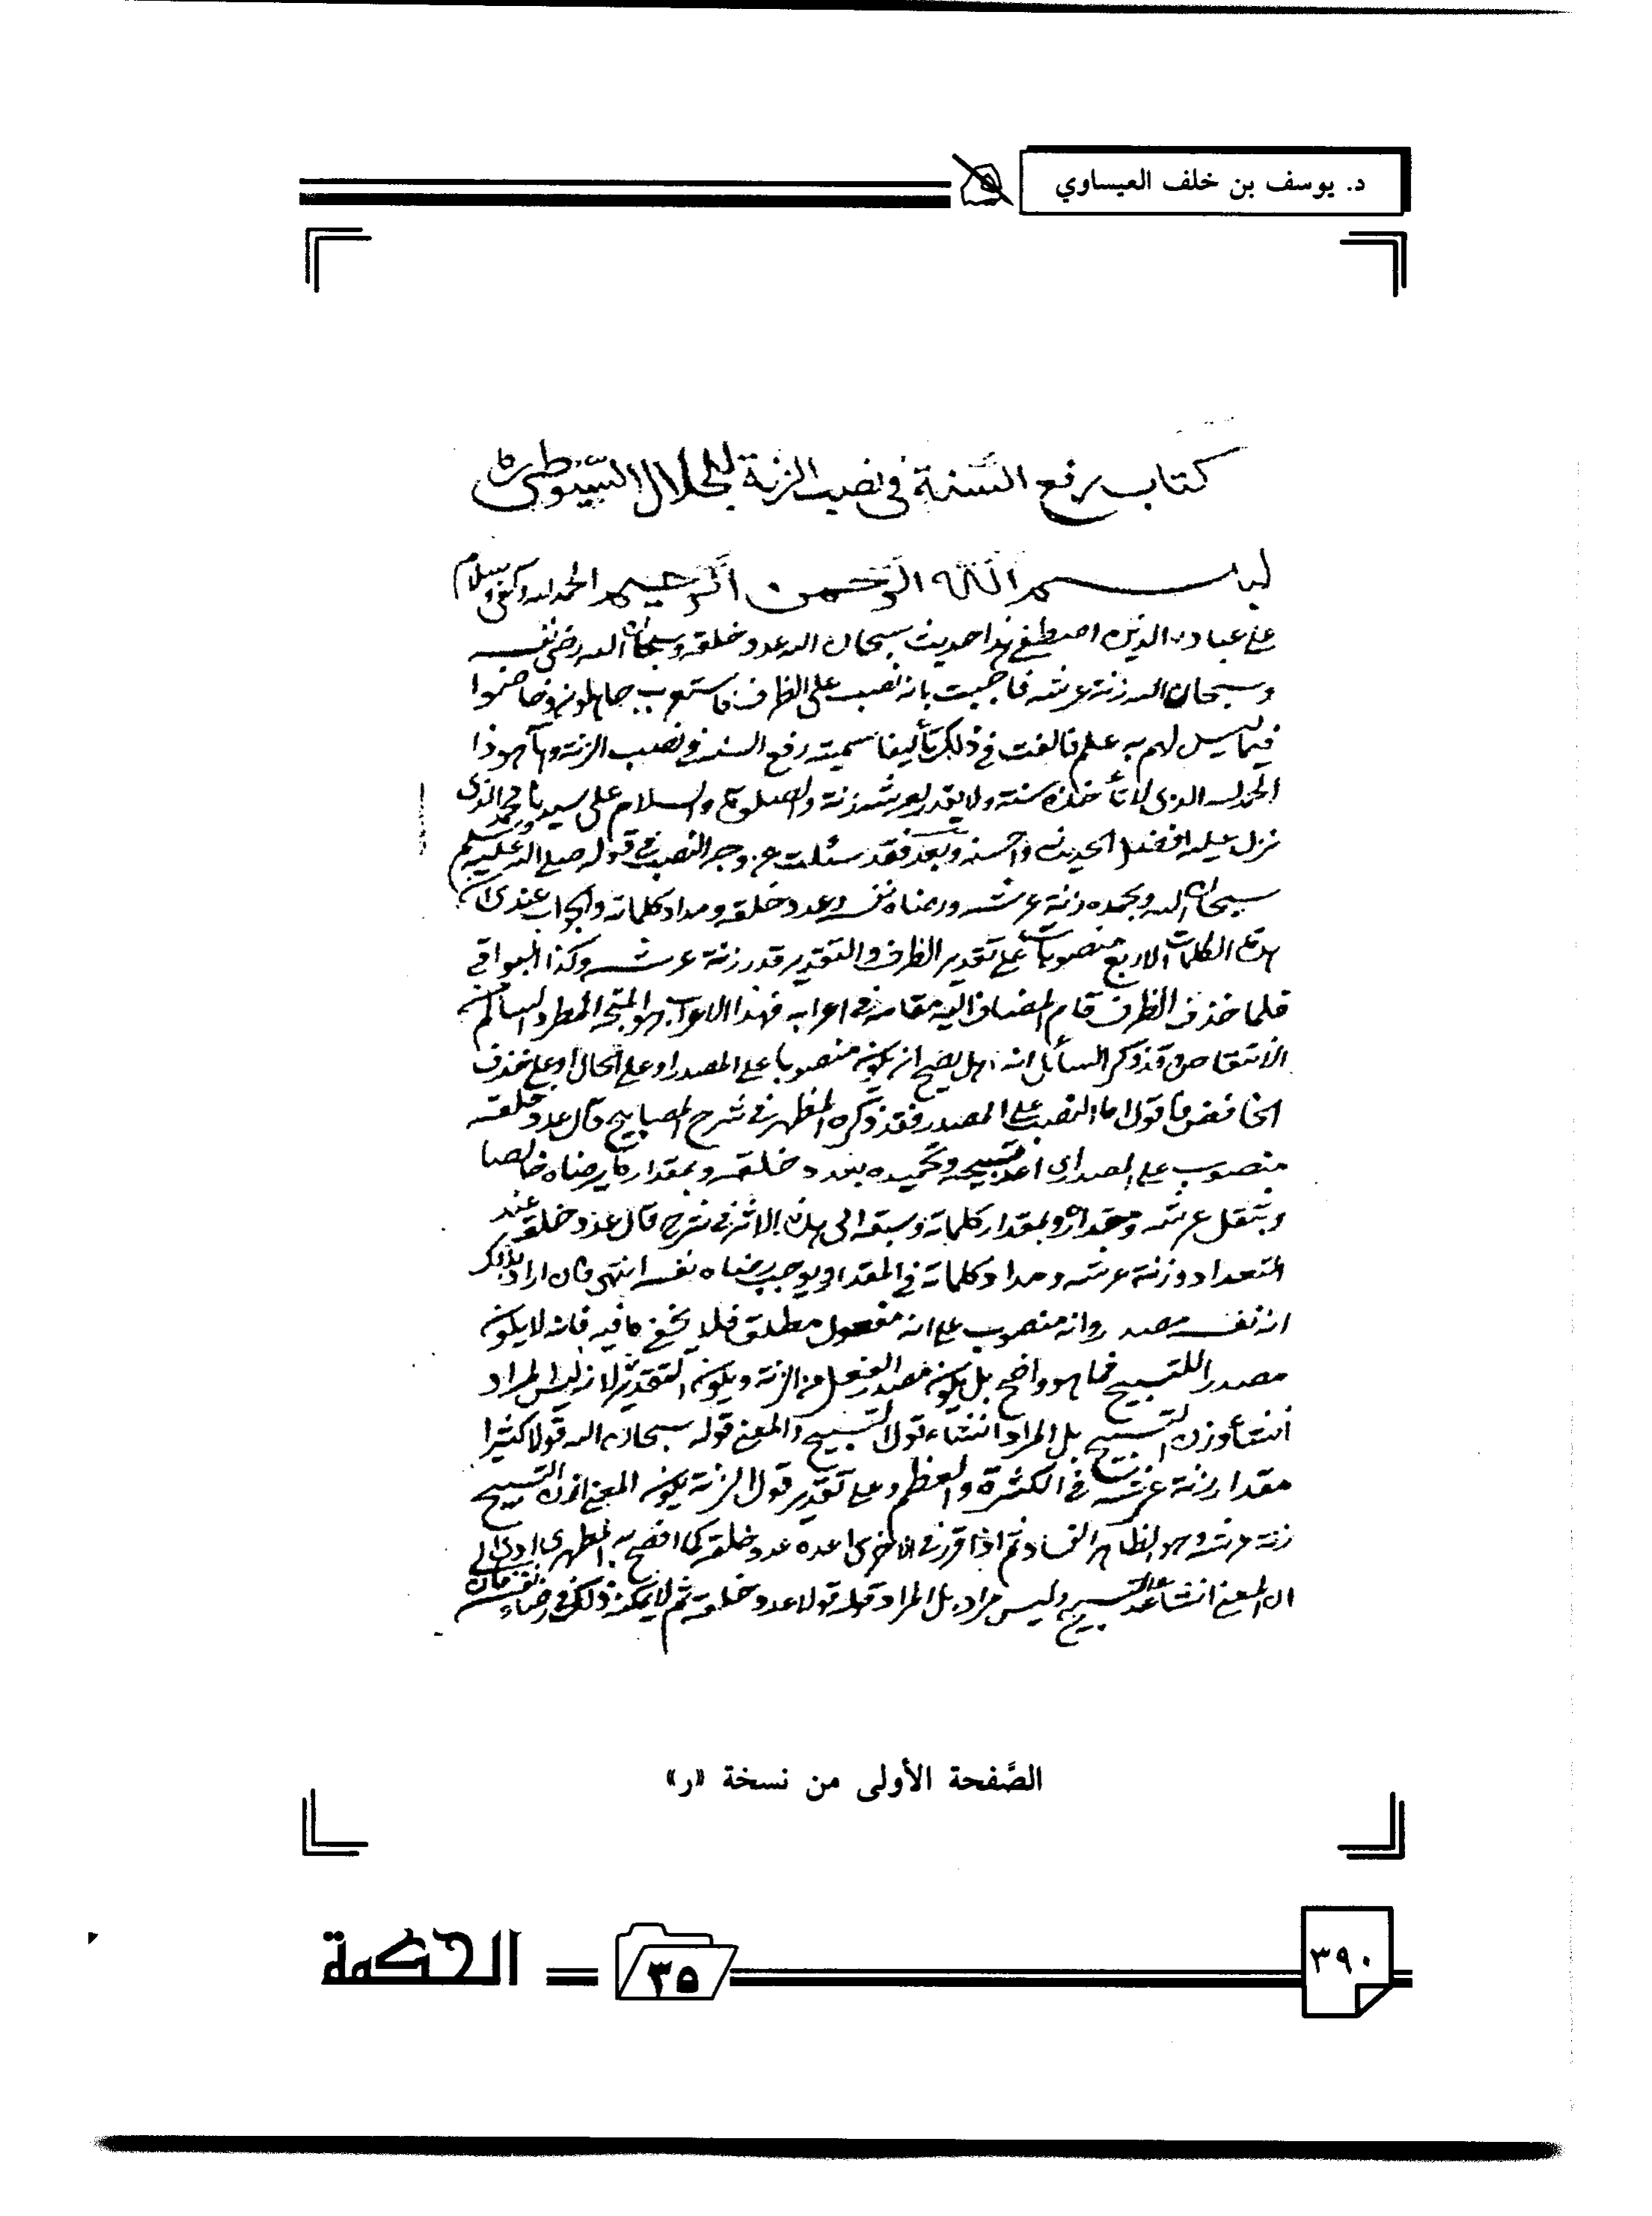 د. يوسف بن خلف العيساوي
كتاب رفع السنة في نصب الزنة للجلال السيوطي
بسم الله الرحمن الرحيم الحمد لله وكفى وسلام
على عباده الذين اصطفى هذا حديث سبحان الله عدد خلقه وسبحان الله رضى نفسه
وسبحان الله زنة عرشه فاجبت بانه نصب على الظرف فاستعرب جاهلون وخاضوا
فيما ليس لهم به علم فالفت في ذلك تأليفا سميته رفع السنه في نصب الزنة وها هو ذا
الحمد لله الذي لا تأخذه سنة ولا يقدر لعرشه زنة والصلوة والسلام على سيدنا محمد الذي
نزل عليه افضل الحديث واحسنه وبعد فقد سئلت عن وجه النصب في قوله صلى الله عليه وسلم
سبحان الله وبحمده زنة عرشه ورضاه نفسه وعدد خلقه ومداد كلماته والجواب عندي ان
هذه الكلمات الاربع منصوبات على تقدير الظرف والتقدير قدر زنة عرشه وكذا البواقي
فلما حذف الظرف قام المضاف اليه مقامه في اعرابه فهذا الاعراب هو المتجه المطرد السالم من
الانتقاض وقد ذكر السائل انه هل يصح ان يكون منصوبا على المصدر او على الحال او على حذف
الخافض فاقول اما النصب على المصدر فقد ذكره المظهر في شرح المصابيح قال عدد خلقه
منصوب على المصدر اي اعد تسبيحه وتحميده بعدد خلقه وبمقدار ما يرضاه خالصا
وبثقل عرشه ومقداره وبمقدار كلماته وسبقه الى هذا الاثر في شرح قال عدد خلقه عند
التعداد وزنة عرشه ومداد كلماته في المقدار ويوجب رضاه نفسه انتهى فان اراد بذلك
انه نفسه مصدر وانه منصوب على انه مفعول مطلق فلا يخفى ما فيه فانه لا يكون
مصدرا للتسبيح كما هو واضح بل يكون مصدر الفعل من الزنة ويكون التقدير لانه ليس المراد
انشأ وزن التسبيح بل المراد انشاء قول التسبيح والمعنى قوله سبحان الله قولا كثيرا
مقدار زنة عرشه في الكثرة والعظم وعلى تقدير قول الزنة يكون المعنى ازن التسبيح
زنة عرشه وهو الظاهر الفساد ثم اذا قرر في الاخرى اعده عدد خلقه كما افصح به المظهري ادى الى
ان المعنى انشا عد التسبيح وليس مراد بل المراد قوله قولا عدد خلقه ثم لا يمكن ذلك في رضاء نفسه فان
الصَّفحة الأولى من نسخة «ر»
٣٩٠
٣٥
الحكمة